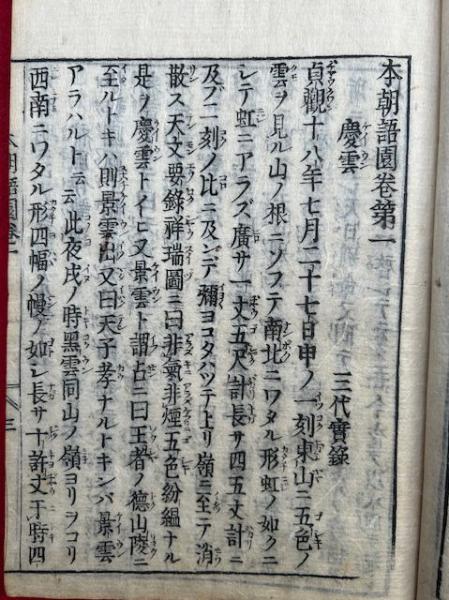 本朝語園卷第一
慶雲　三代實錄
貞觀十八年七月二十七日申ノ一刻東山ニ五色ノ
雲ヲ見ル山ノ根ニソフテ南北ニワタル形虹ノ如クニ
レテ虹ニアラズ廣サ一丈五尺計長サ四五丈計ニ
及ブニ刻ノ比ニ及ンデ彌ヨコタハツテ上リ嶺ニ至テ消
散ス天文要錄祥瑞圖ニ曰非氣非煙五色紛縕ナル
是ノ慶雲トイヒ又景雲ト謂占ニ曰王者ノ德山陵ニ
至ルトキハ則景雲出又曰天子孝ナルトキンバ景雲
アラハルト云云此夜戌ノ時黑雲同山ノ嶺ヨリヲコリ
西南ニワタル形四幅ノ幔ノ如レ長サ十許丈于時四
本朝語園卷一
三